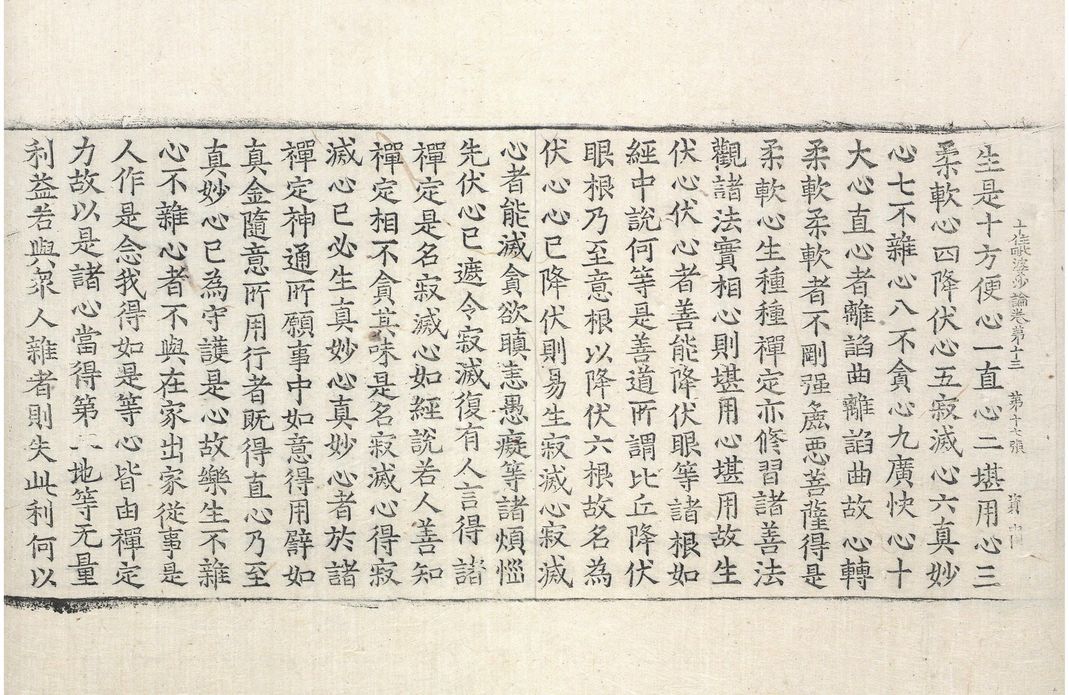 十住毗婆沙論卷第十三　第十六張
生是十方便心一直心二堪用心三
柔軟心四降伏心五寂滅心六真妙
心七不雜心八不貪心九廣快心十
大心直心者離諂曲離諂曲故心轉
柔軟柔軟者不剛强麁惡菩薩得是
柔軟心生種種禪定亦修習諸善法
觀諸法實相心則堪用心堪用故生
伏心伏心者善能降伏眼等諸根如
經中說何等是善道所謂比丘降伏
眼根乃至意根以降伏六根故名為
伏心心已降伏則易生寂滅心寂滅
心者能滅貪欲瞋恚愚癡等諸煩惱
先伏心已遮令寂滅復有人言得諸
禪定是名寂滅心如經說若人善知
禪定相不貪其味是名寂滅心得寂
滅心已必生真妙心真妙心者於諸
禪定神通所願事中如意得用譬如
真金隨意所用行者既得直心乃至
真妙心已為守護是心故樂生不雜
心不雜心者不與在家出家從事是
人作是念我得如是等心皆由禪定
力故以是諸心當得第二地等无量
利益若與衆人雜者則失此利何以